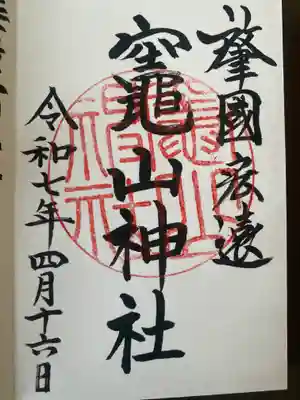 肇國宏遠
竈山神社
令和七年四月十六日